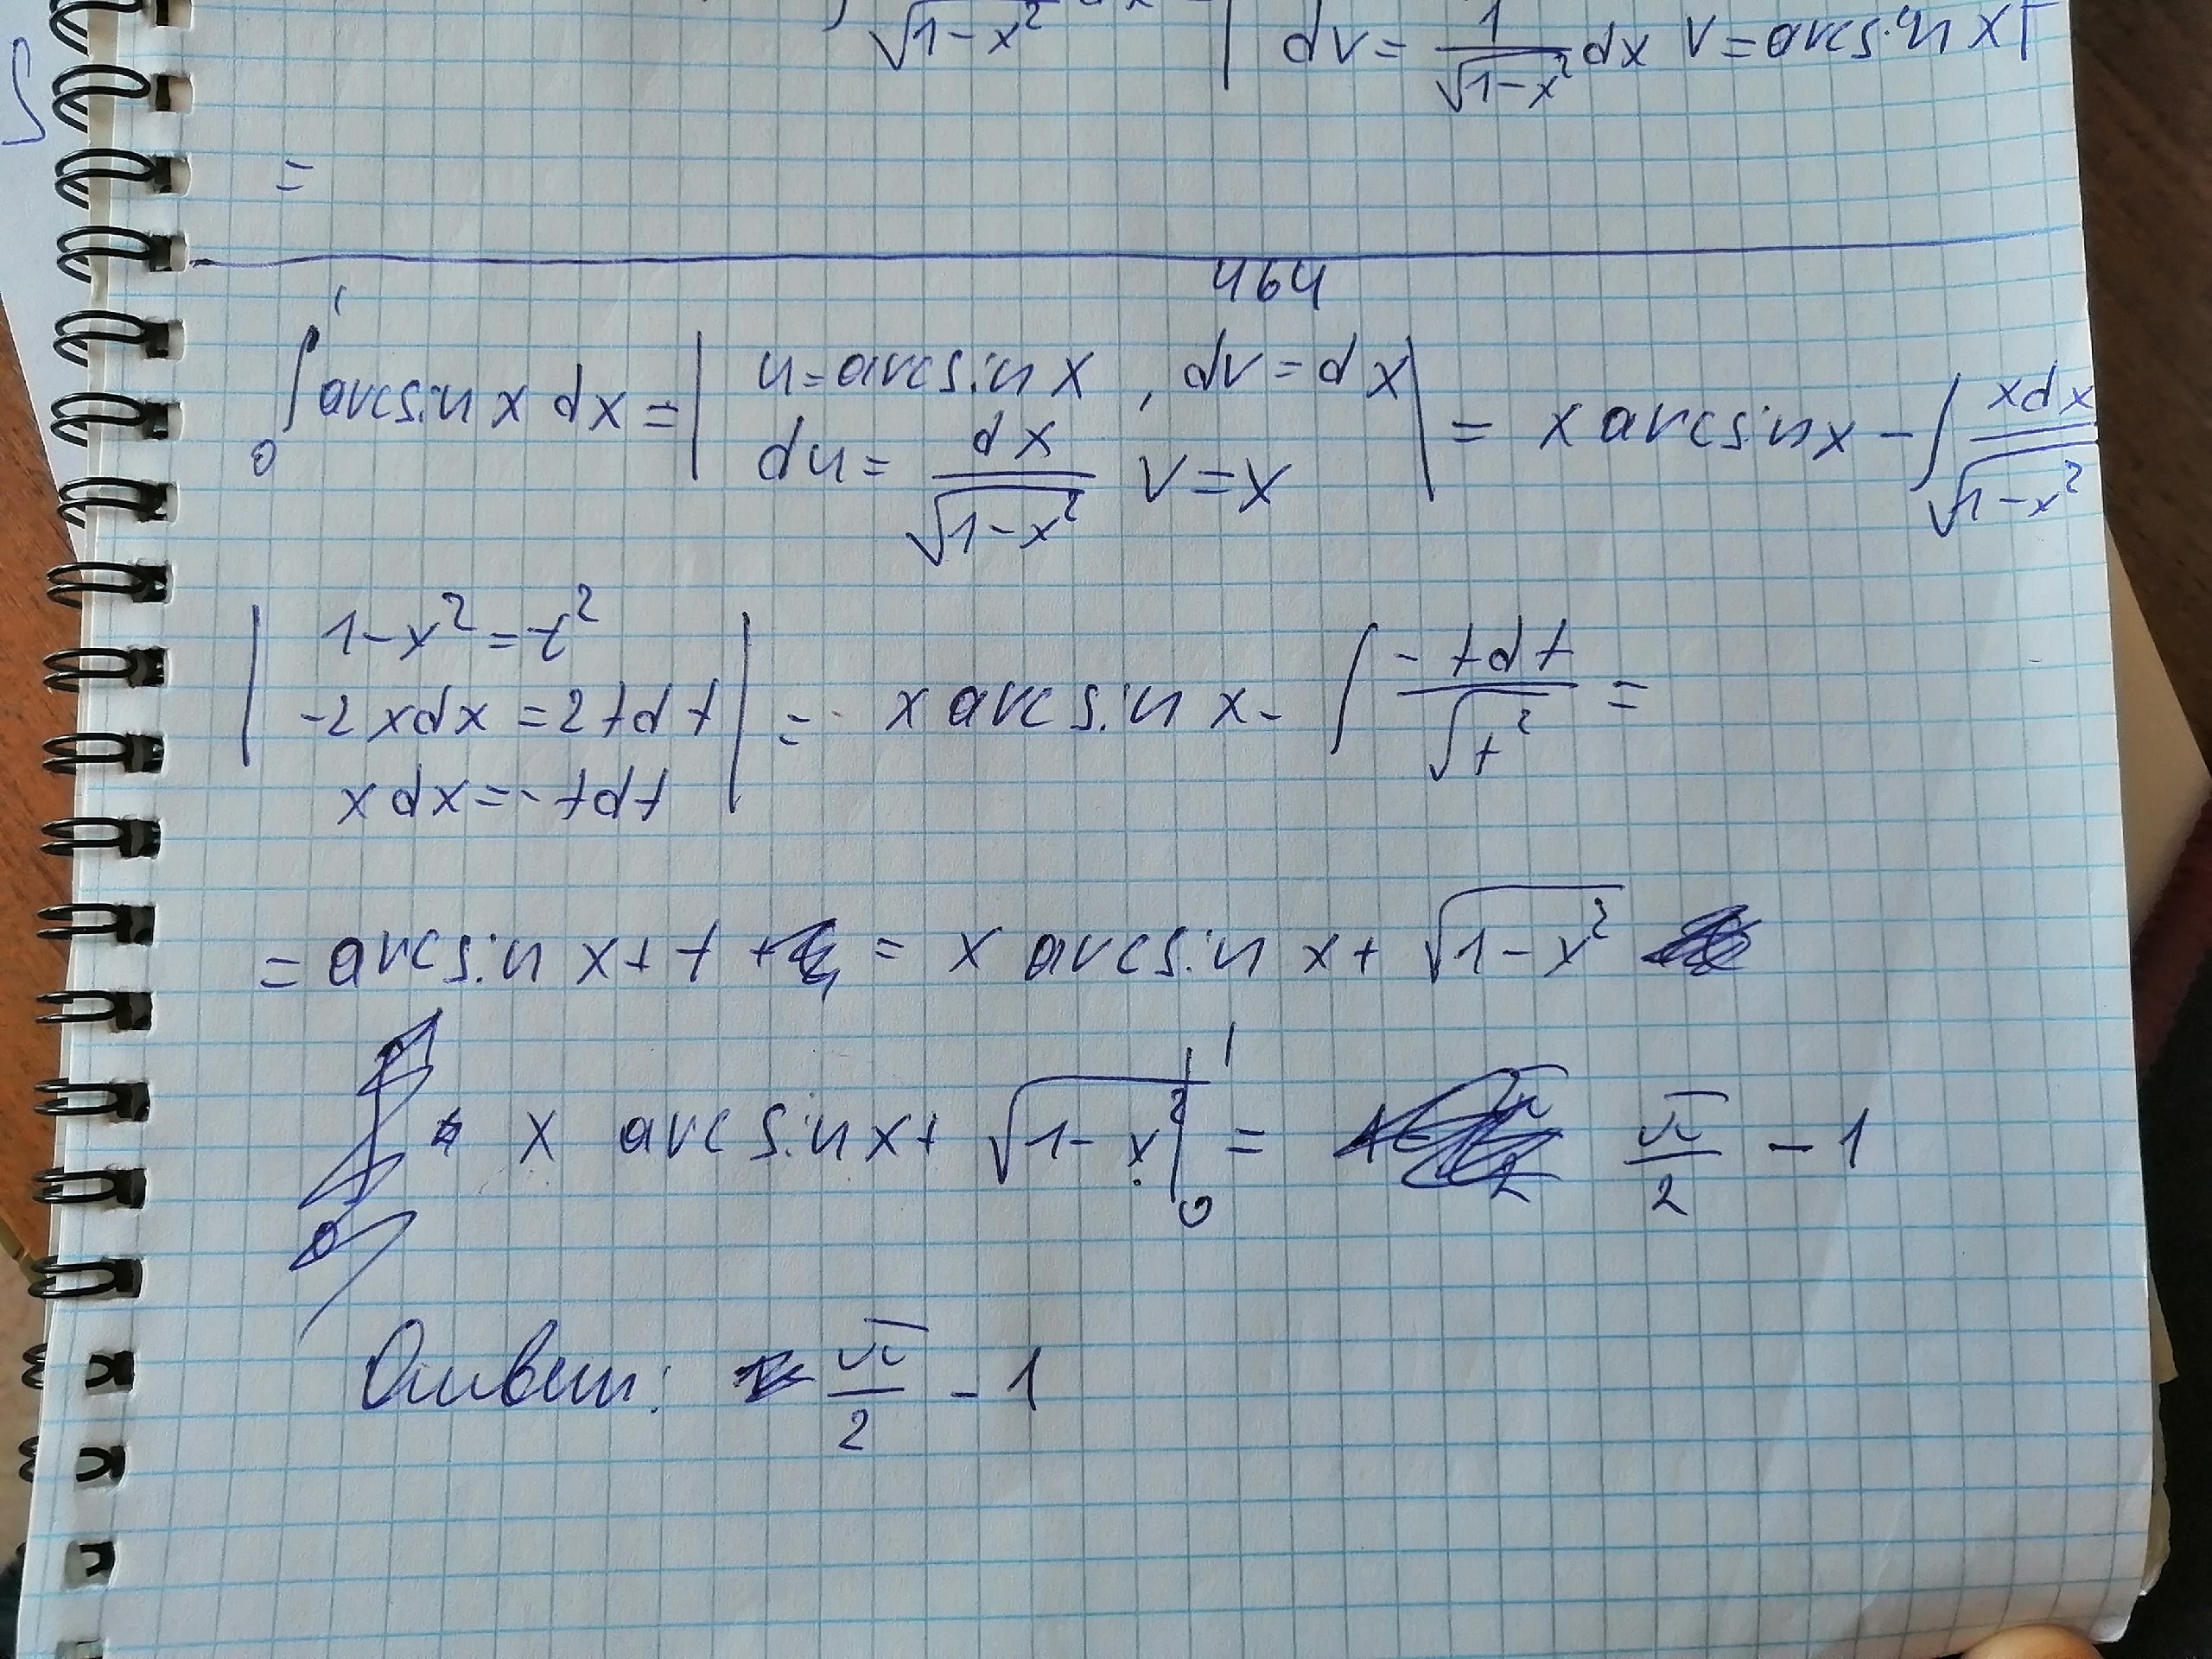 √1-x² | dv = 1/√1-x² dx v = arcsin x
=
464
∫₀¹ arcsin x dx = | u = arcsin x , dv = dx | = x arcsin x - ∫ xdx/√1-x²
du = dx/√1-x² v = x
| 1-x² = t²
-2xdx = 2tdt | = x arcsin x - ∫ -tdt/√t² =
xdx = -tdt
= arcsin x + t + = x arcsin x + √1-x²
x arcsin x + √1-x² |₀¹ = π/2 - 1
Ответ: π/2 - 1